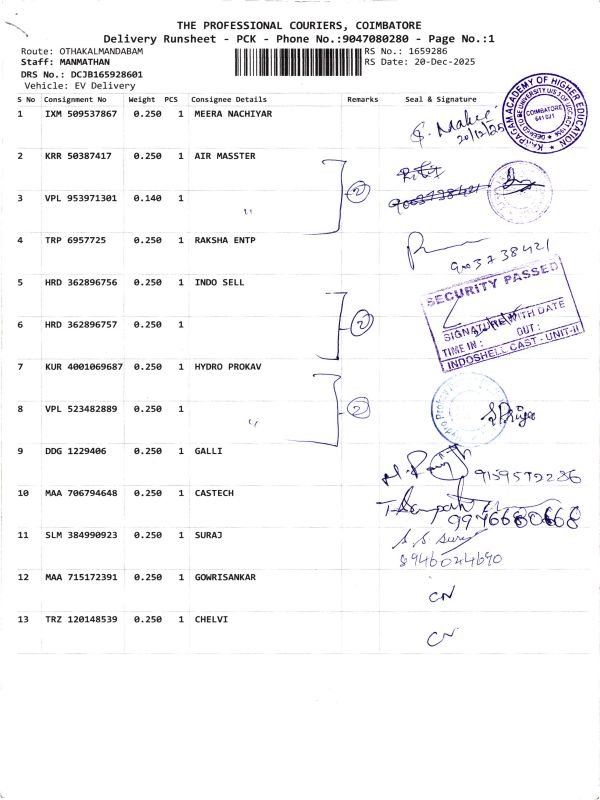 THE PROFESSIONAL COURIERS, COIMBATORE
Delivery Runsheet - PCK - Phone No.:9047080280 - Page No.:1
Route: OTHAKALMANDABAM
RS No.: 1659286
Staff: MANMATHAN
RS Date: 20-Dec-2025
DRS No.: DCJB165928601
Vehicle: EV Delivery
S No Consignment No Weight PCS Consignee Details Remarks Seal & Signature
1 IXM 509537867 0.250 1 MEERA NACHIYAR
20/12/25
COIMBATORE
641 021
2 KRR 50387417 0.250 1 AIR MASSTER
2
3 VPL 953971301 0.140 1 "
4 TRP 6957725 0.250 1 RAKSHA ENTP
9003738421
5 HRD 362896756 0.250 1 INDO SELL
SECURITY PASSED
2
SIGNATURE WITH DATE
TIME IN : OUT :
INDOSHELL CAST - UNIT-II
6 HRD 362896757 0.250 1
7 KUR 4001069687 0.250 1 HYDRO PROKAV
2
8 VPL 523482889 0.250 1 "
S Priya
9 DDG 1229406 0.250 1 GALLI
9159572286
10 MAA 706794648 0.250 1 CASTECH
9976680668
11 SLM 384990923 0.250 1 SURAJ
8946024690
12 MAA 715172391 0.250 1 GOWRISANKAR
CN
13 TRZ 120148539 0.250 1 CHELVI
CN